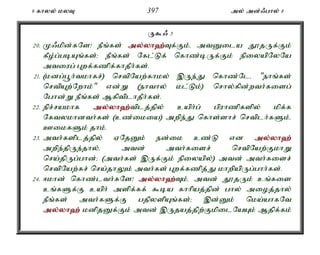 9 காலல் மலவு 397 அல் அன்ஃபால் 8
ருகூஃ 3
20. முஃமின்களே! நீங்கள் அல்லாஹ்வுக்கும், அவனுடைய தூதருக்கும்
கீழ்ப்படியுங்கள்; நீங்கள் கேட்டுக் கொண்டிருக்கும் நிலையிலேயே
அவரைப் புறக்கணிக்காதீர்கள்.
21. (மனப்பூர்வமாகச்) செவியேற்காமல் இருந்து கொண்டே "நாங்கள்
செவியுற்றோம்" என்று (நாவால் மட்டும்) சொல்கின்றவர்களைப்
போன்று நீங்கள் ஆகிவிடாதீர்கள்.
22. நிச்சயமாக அல்லாஹ்விடத்தில் உயிர்ப் பிராணிகளில் மிக்க
கேவலமானவர்கள் (உண்மையை) அறிந்து கொள்ளாச் செவிடர்களும்,
ஊமைகளும் தாம்.
23. அவர்களிடத்தில் ஏதேனும் நன்மை உண்டு என அல்லாஹ்
அறிந்திருந்தால், அவன் அவர்களைச் செவியேற்குமாறு
செய்திருப்பான்; (அவர்கள் இருக்கும் நிலையில்) அவன் அவர்களைச்
செவியேற்கச் செய்தாலும் அவர்கள் புறக்கணித்து மாறியிருப்பார்கள்.
24. ஈமான் கொண்டவர்களே! அல்லாஹ்வும், அவன் தூதரும் உங்களை
உங்களுக்கு உயிர் அளிக்கக் கூடிய காரியத்தின் பால் அழைத்தால்
நீங்கள் அவர்களுக்கு பதிலளியுங்கள்; இன்னும் மெய்யாகவே
அல்லாஹ் மனிதனுக்கும் அவன் இருதயத்திற்குமிடையேயும் ஆதிக்கம்